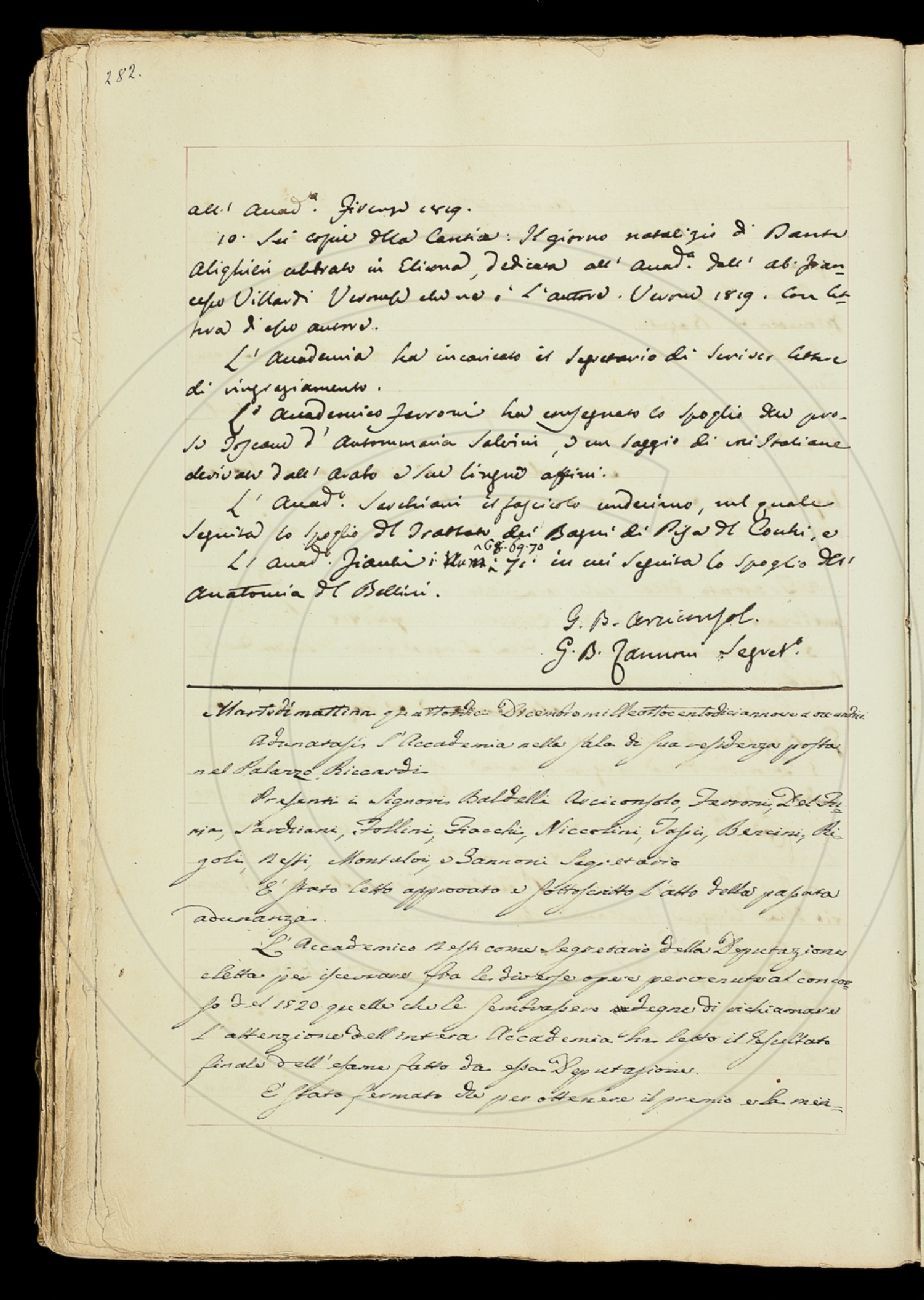 282.
all' Accad.ª Firenze 1819.
10. Sei copie della Cantica: Il giorno natalizio di Dante
Alighieri celebrato in Eliona, dedicata all' Accad.ª dall' ab. Fran=
cesco Villardi Veronese che ne è l'autore. Verona 1819. Con let=
tera d'esso autore.
L' Accademia ha incaricato il Segretario di scriver lettere
di ringraziamento.
L' Accademico Ferroni ha consegnato lo spoglio delle pro=
se Toscane d' Antommaria Salvini, e un saggio di voci Italiane
derivate dall' Arabo e sue lingue affini.
L' Accad.º Sarchiani il fascicolo undecimo, nel quale
seguita lo spoglio del Trattato dei Bagni di Pisa del Cocchi, e
L' Accad.º Fiacchi i Num. 68. 69. 70 71. in cui seguita lo spoglio dell'
Anatomia del Bellini.
G. B. Arciconsol.
G. B. Zannoni Segret.º
Martedì mattina quattordici Dicembre mille ottocento diciannove a ore undici
Adunatasi l'Accademia nella sala di sua residenza posta
nel Palazzo Riccardi
Presenti i Signori Baldelli Arciconsolo, Ferroni, Del Fu=
ria, Sarchiani, Follini, Fiacchi, Niccolini, Bencini, Ri=
goli, Nesti, Montalvi, e Zannoni Segretario
E' stato letto approvato e sottoscritto l'atto della passata
adunanza.
L' Accademico Nesti come Segretario della Deputazione
eletta per iscernere fra le diverse opere pervenute al concor=
so del 1820 quelle che le sembrassero degne di richiamare
l'attenzione dell'intera Accademia ha letto il resultato
finale dell'esame fatto da essa Deputazione.
E' stato fermato che per ottenere il premio e la men=